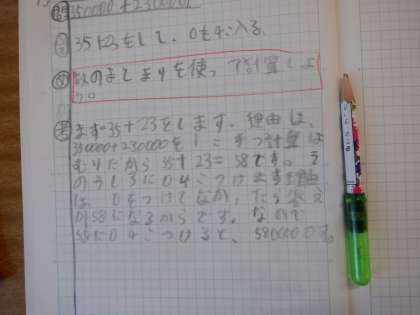 問 350000+230000
予 35+23をして、0を4こ入る。
め 数のまとまりを使って計算しよ
う。
考 まず35+23をします。理由は、
350000+230000を1こずつ計算は
むりだから35+23=58です。そ
のうしろに0 4こつけます理由
は、0をつけてなかったら答え
が58になるからです。なので
58に0 4こつけると、580000です。